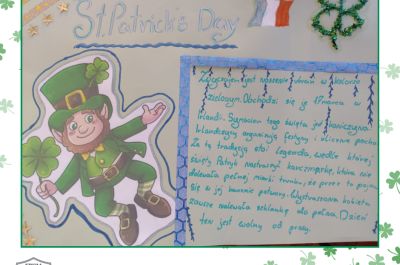 St.Patrick's Day
Zwyczajem jest noszenie ubrań w kolorze
zielonym. Obchodzi się je 17 marca w
Irlandii. Symbolem tego święta jest koniczyna.
Irlandczycy organizują festyny i uliczne pochody.
Za tą tradycją stoi legenda, według której
święty Patryk nastraszył karczmarkę, która nie
dolewała pełnej miarki trunku, że przez to pojawi
się w jej tawernie potwór. Wystraszona kobieta
zawsze nalewała szklankę do pełna. Dzień
ten jest wolny od pracy.